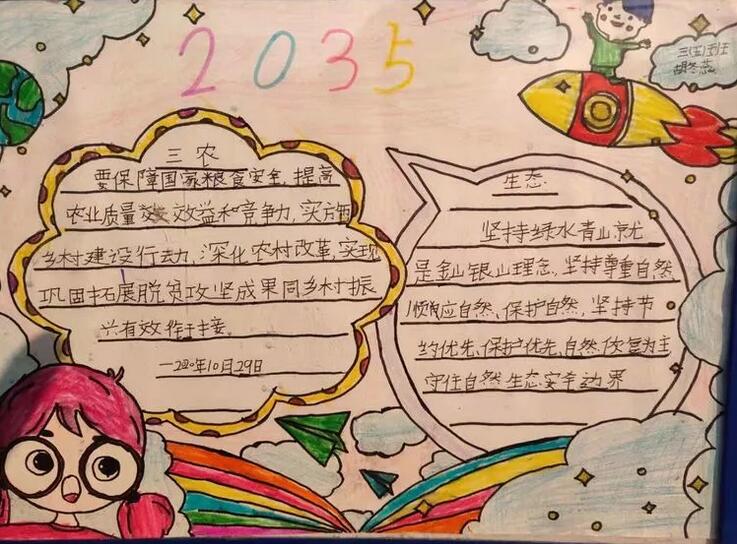 2035
三(五)班
胡冬蕊
三农
要保障国家粮食安全，提高
农业质量效效益和竞争力，实方施
乡村建设行动，深化农村改革，实现
巩固拓展脱贫攻坚成果同乡村振
兴有效作于接。
一2020年10月29日
生态
坚持绿水青山就尤
是金山银山理念，坚持尊重自然
顺应自然、保护自然，坚持节
约优先、保护优先、自然恢复为主
守住自然生态安全边界